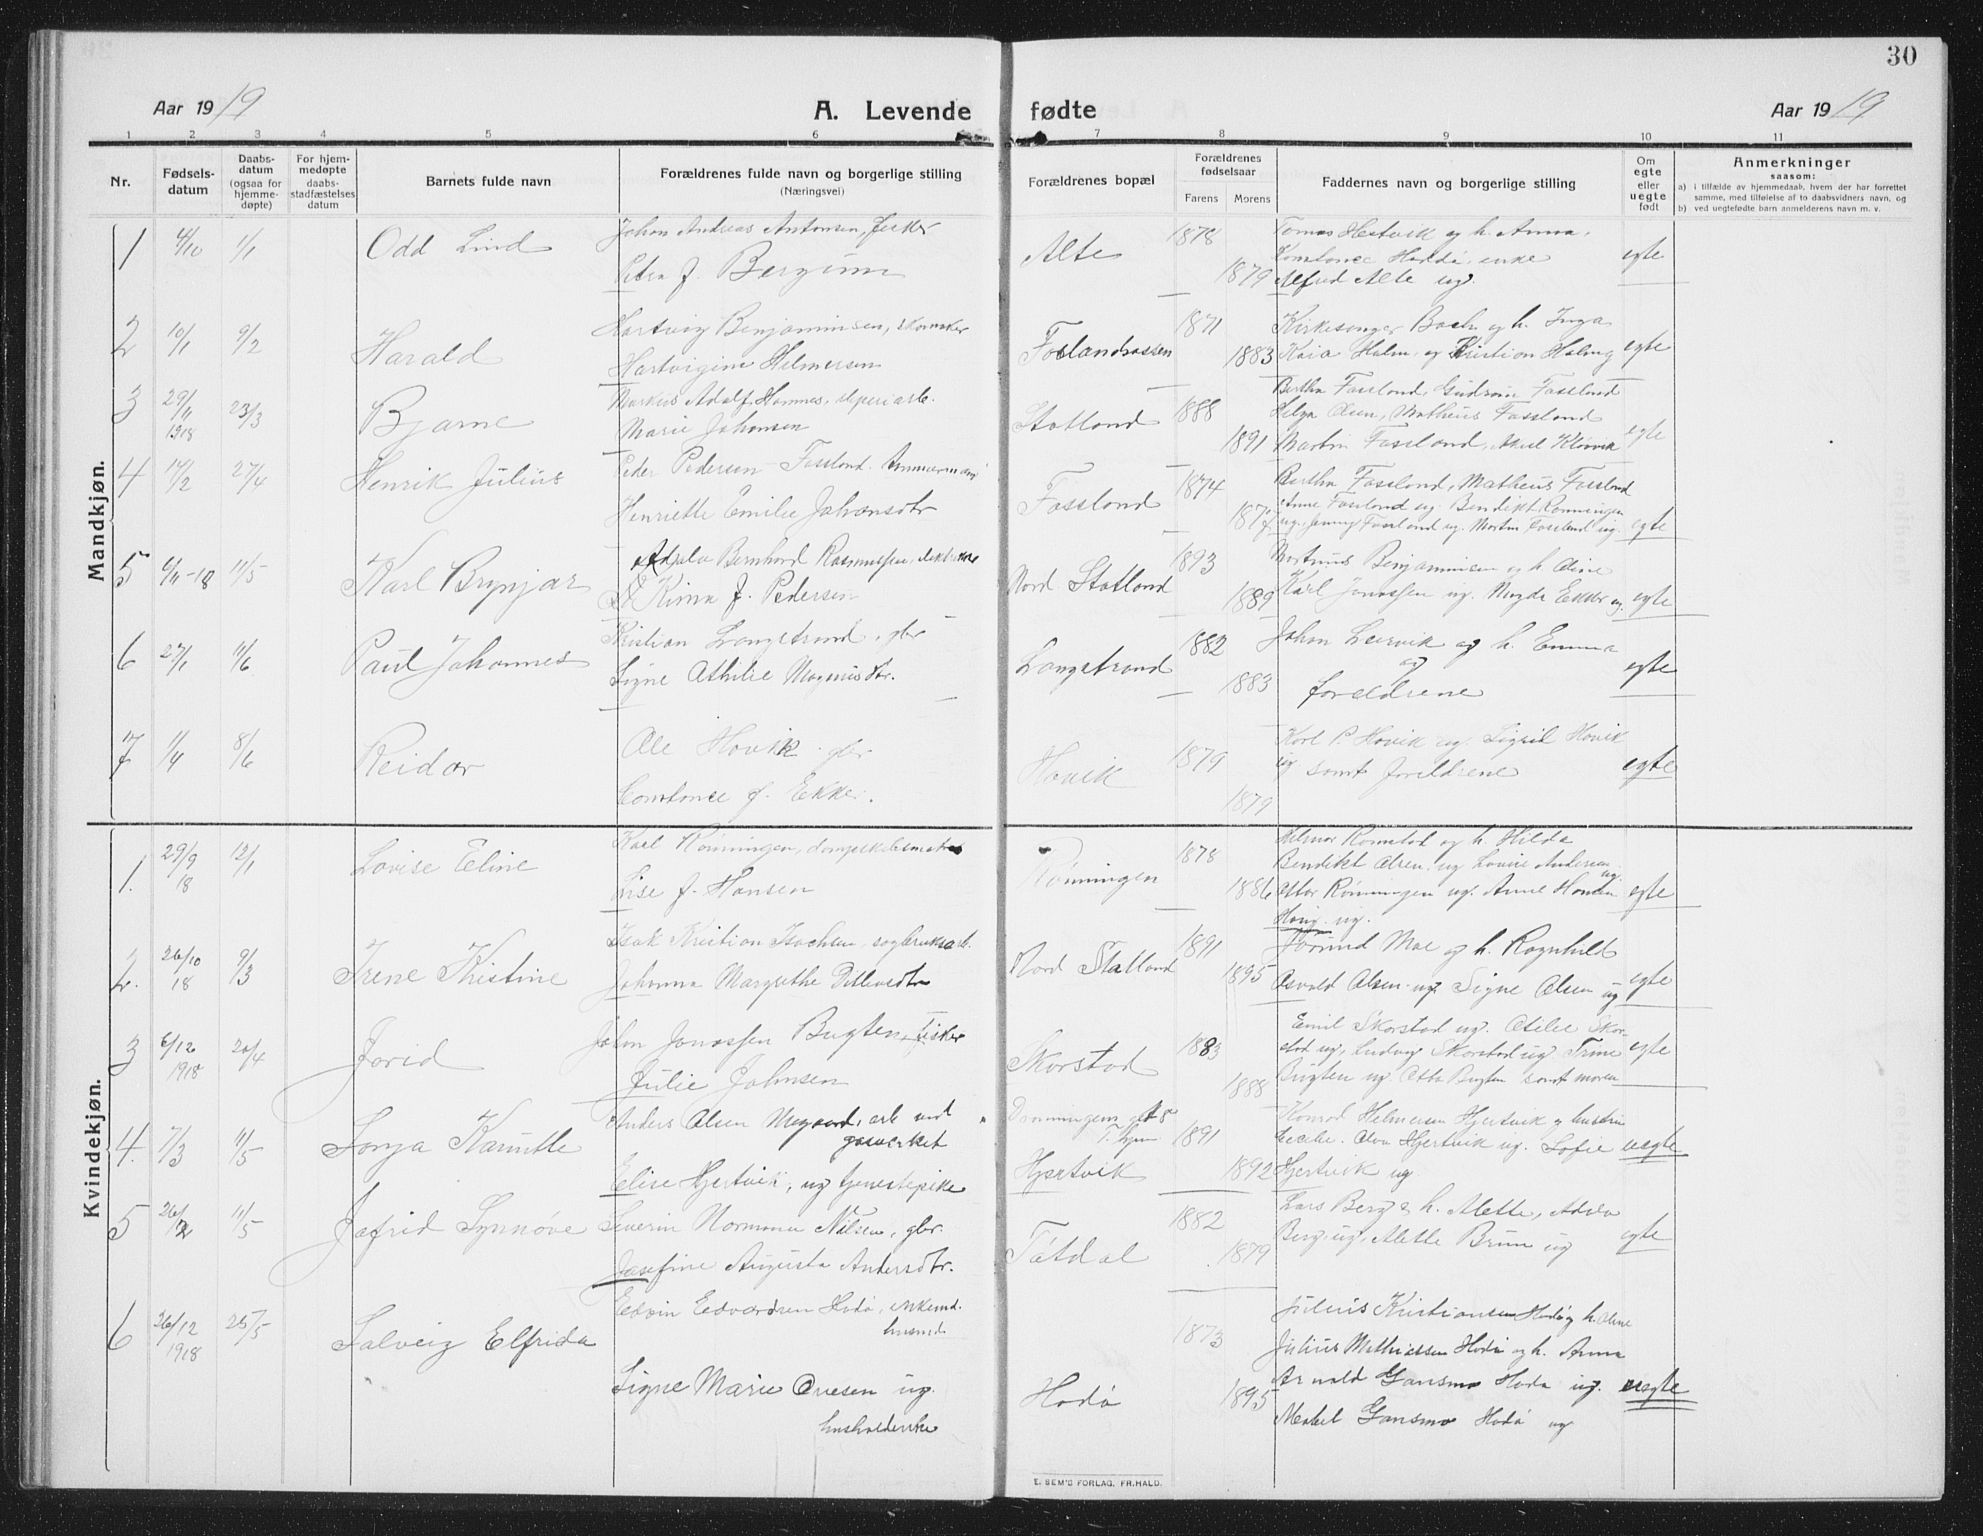 30
Aar 1919
A. Levende fødte
Aar 1919
1 2 3 4 5 6 7 8 9 10 11
Nr.
Fødsels-
datum
Daabs-
datum
(ogsaa for
hjemme-
døpte)
For hjem-
medøpte
daabs-
stadfæstelses
datum
Barnets fulde navn
Forældrenes fulde navn og borgerlige stilling
(Næringsvei)
Forældrenes bopæl
Forældrenes
fødselsaar
Farens Morens
Faddernes navn og borgerlige stilling
Om
egte
eller
uegte
født
Anmerkninger
saasom:
a) i tilfælde av hjemmedaab, hvem der har forrettet
samme, med tilføielse af to daabsvidners navn, og
b) ved uegtefødte barn anmelderens navn m. v.
Mandkjøn.
1 4/10 1/1 Odd Lind
Johan Andreas Antonsen, fisker
Petra f. Bergum
Alte 1878 1879
Tomas Hestvik og h. Anna.
Konstance Hodø, enke
Alfred Alte ug.
egte
2 10/1 9/2 Harald
Hartvig Benjaminsen, skomaker
Hartvigine Helmersen
Foslandsosen 1871 1883
Kirkesanger Bach og h. Inga
Kaia Holm og Kristian Holm ug
egte
3 29/11 1918 23/3 Bjarne
Markus Adolf Hamnes, sliperiarb.
Marie Johansen
Statland 1888 1891
Bertha Fossland, Gudrun Fossland
Helga Olsen, Matheus Fossland
Martin Fossland, Aksel
egte
4 14/2 27/4 Henrik Julius
Peder Pedersen Fossland
Henriette Emilie Johansdtr
Fossland 1874
Bertha Fossland, Matheus Fossland
Anne Fossland ug. Bendikt Rønningen
ug. Jenny Fossland ug. Martin Fossland ug.
egte
5 6/11-18 11/5 Karl Brynjar
Bernhard Rasmussen
Kima f. Pedersen
Nord Statland 1893 1889
Martinus Benjaminsen og h. Oline
Karl Jonassen ug. Magda Ekker ug.
egte
6 27/1 11/6 Paul Johannes
Kristian Langstrand, gbr
Signe Othilie Magnusdtr.
Langstrand 1882 1883
Johan Leirvik og h. Emma
og
forældrene
egte
7 1/4 8/6 Reidar
Ole Hovik gbr
Constance f. Ekker.
Hovik 1879 1879
Karl P. Hovik ug. Sigrid Hovik
ug samt forældrene
egte
Kvindekjøn.
1. 29/9 18 12/1 Lovise Eline
Karl Rønningen, dampskibsmatros
Lise f. Hansen
Rønningen 1878 1886
Helmer Romstad og h. Hilda
Bendikt Olsen ug Lovise Andersen ug.
Ottar Rønningen ug. Anne
ug.
egte
2. 26/10 18 9/3 Irene Kristine
Isak Kristian Isachsen, sagbruksarb.
Johanna Margrethe Ditlevsdtr
Nord Statland 1891 1895
Moe og h. Ragnhild
Osvald Olsen ug. Signe Olsen ug
egte
3 6/12 1918 20/4 Jorid
Johan Jonassen Bugten, fisker
Julie Johnsen
Skorstad 1883 1888
Emil Skorstad ug. Otilie Skor-
stad ug, Ludvig Skorstad ug Trine
Bugten ug. Otto Bugten samt moren
egte
4. 7/3 11/5 Sonja Kamille
Anders Olsen Mogaard, arb ved
gasverket
Elise Hjertvik, ug tjenestepike
Dronningens gt 8
T.hjem
Hjertvik 1891 1892
Konrad Helmersen Hjertvik og hustru
Cecilie. Olva Hjertvik ug. Sofie
Hjertvik ug
uegte
5 26/2 11/5 Jofrid Synnøve
Severin Normann Nilsen, gbr.
Josefine Augusta Andersdtr.
Tøtdal 1882 1879
Lars Berg & h. Alette, Advla
Berg ug, Alette Brun ug
egte
6 26/12 1918 25/5 Solveig Elfrida
Edvin Edvardsen Hodø, enkemd.
husmd
Signe Marie Ovesen ug.
husholderske
Hodø 1873 1895
Julius Kristiansen Hodø og h. Oline
Julius Mathiassen Hodø og h. Anna
Arnold Gansmo Hodø ug.
Gansmo Hodø ug
uegte
E. SEM'S FORLAG, FR.HALD.